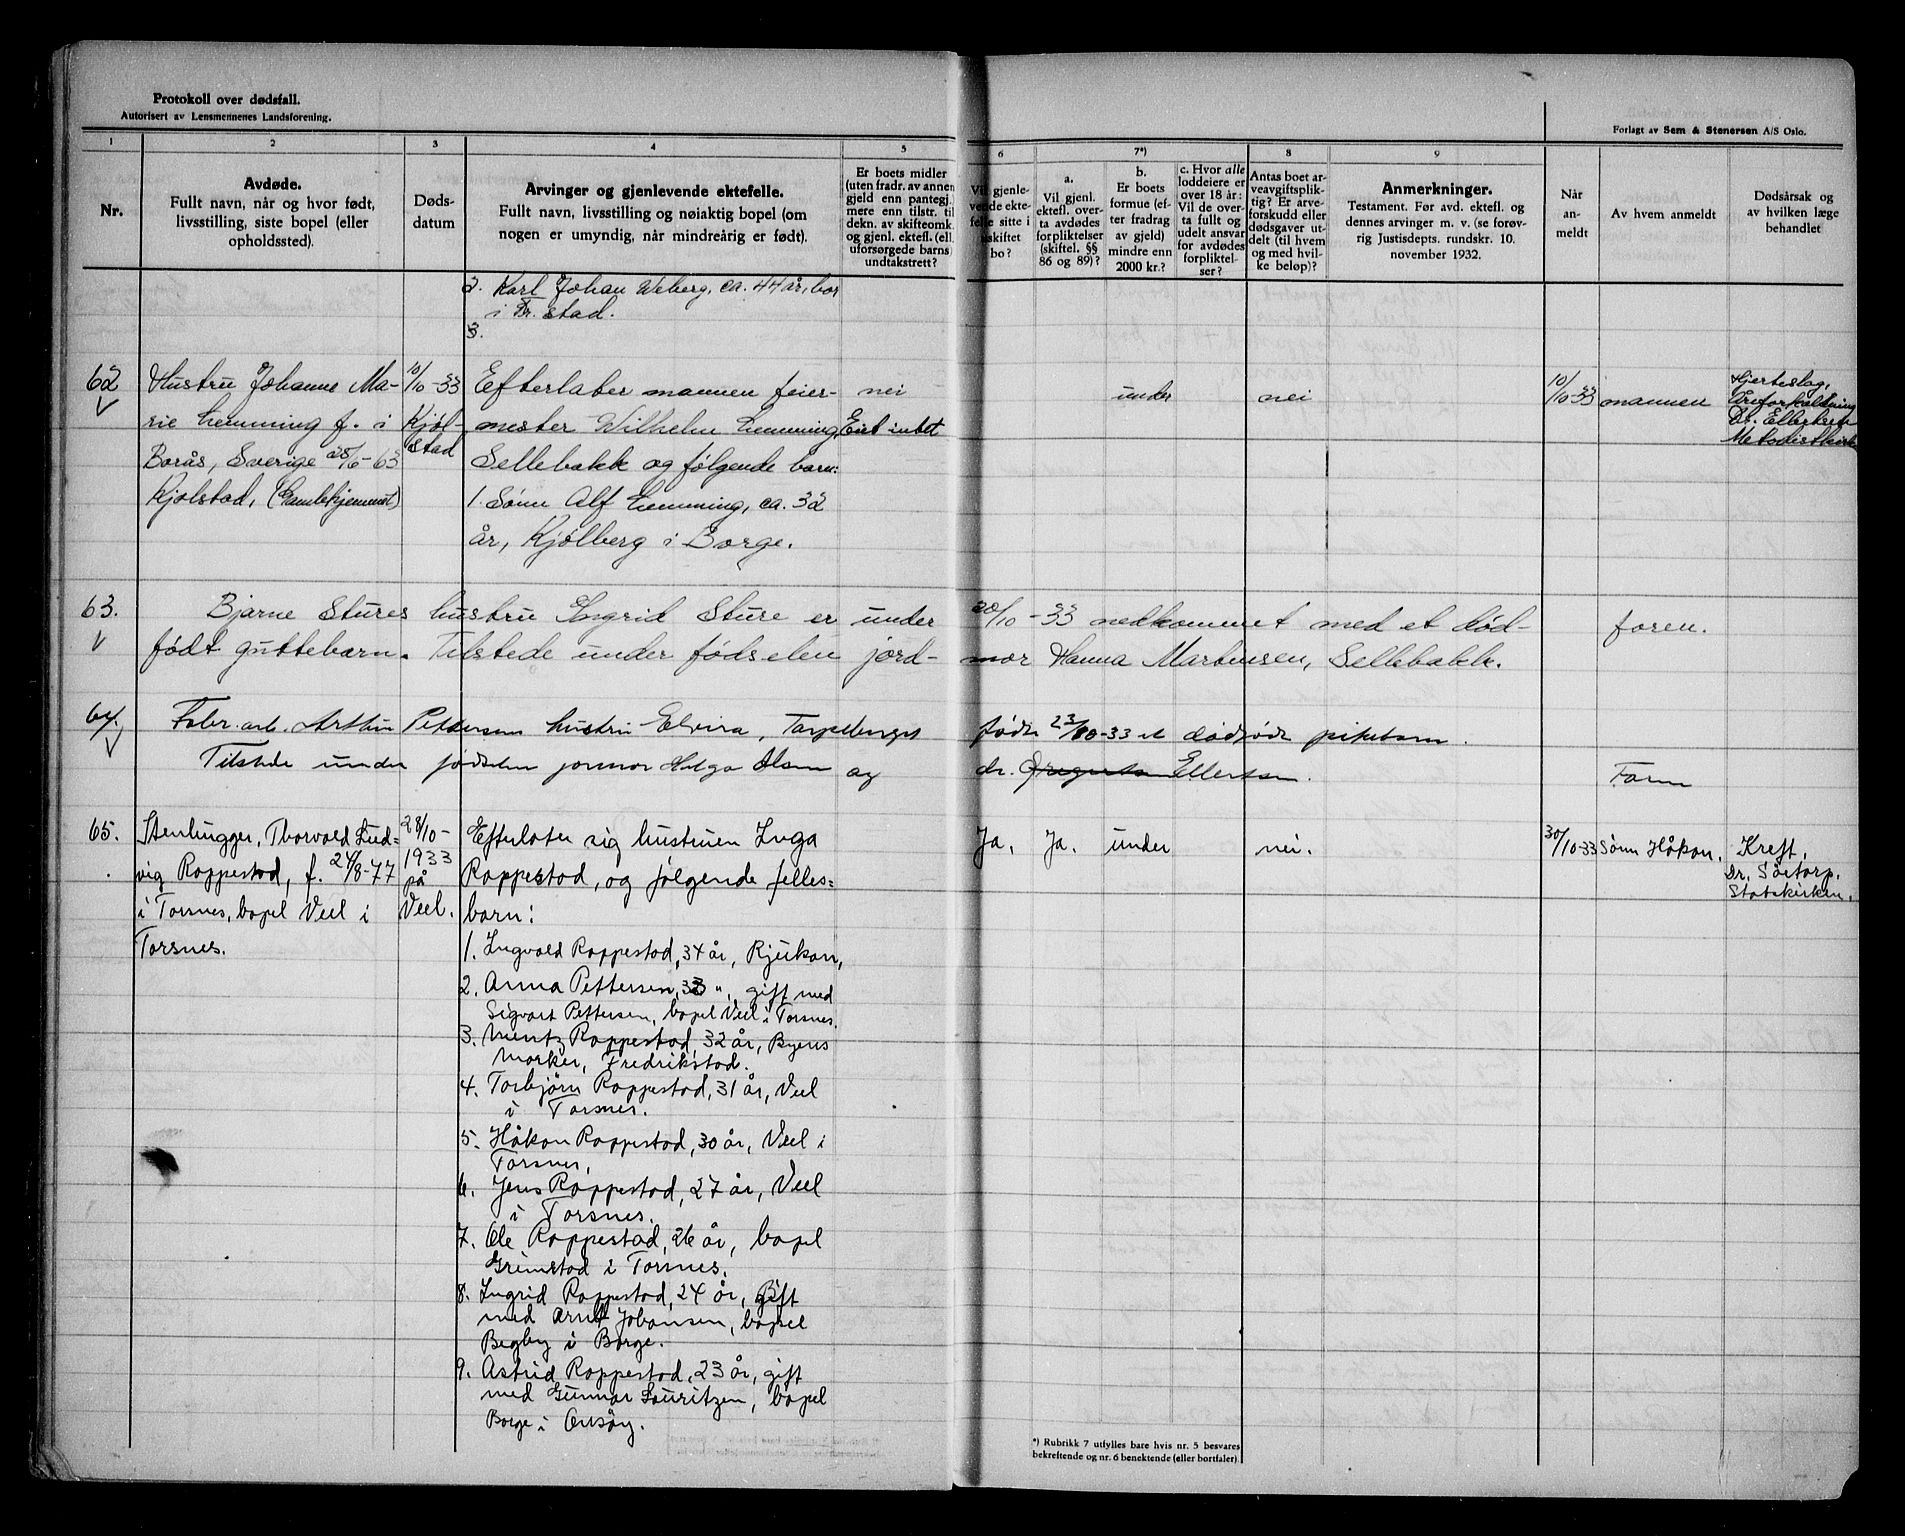 Protokoll over dødsfall.
Autorisert av Lensmennenes Landsforening.
Forlagt av Sem & Stenersen A/S Oslo.
1 2 3 4 5 6 7*) 8 9
Nr.
Avdøde.
Fullt navn, når og hvor født,
livsstilling, siste bopel (eller
opholdssted).
Døds-
datum
Arvinger og gjenlevende ektefelle.
Fullt navn, livsstilling og nøiaktig bopel (om
nogen er umyndig, når mindreårig er født).
Er boets midler
(uten fradr. av annen
gjeld enn pantegj.)
mere enn tilstr. til
dekn. av skifteomk.
og gjenl. ektefl. (ell.
uforsørgede barns)
undtakstrett?
Vil gjenle-
vende ekte-
felle sitte i
uskiftet
bo?
a.
Vil gjenl.
ektefl. over-
ta avdødes
forpliktelser
(skiftel. §§
86 og 89)?
b.
Er boets
formue (ef-
ter fradrag
av gjeld)
mindre enn
2000 kr.?
c. Hvor alle
loddeiere er
over 18 år:
Vil de over-
ta fullt og
udelt ansvar
for avdødes
forpliktel-
ser?
Antas boet ar-
veavgiftsplik-
tig? Er arve-
forskudd eller
dødsgaver ut-
delt (til hvem
og med hvil-
ke beløp)?
Anmerkninger.
Testament. Før avd. ektefl. og
dennes arvinger m. v. (se forøv-
rig Justisdepts. rundskr. 10.
november 1932.
Når
an-
meldt
Av hvem anmeldt
Dødsårsak og
av hvilken læge
behandlet
2. Karl Johan Weberg, ca. 44 år, bor
i Fr. stad.
3.
62
Hustru Johanne Ma-
rie Lemming f. i
Borås, Sverige 25/6-63
Kjølstad, (Gamlehjemmet)
10/10-33
Kjøl-
stad
Efterlater mannen feier-
mester Wilhelm Lemming,
Sellebakk og følgende barn:
1. Sønn Alf Lemming, ca. 32
år, Kjølberg i Borge.
nei
Eiet intet
under
nei
10/10-33
mannen
Hjerteslag,
Åreforkalkning
Dr. Ellertsen
Metodistkirk
63.
Bjarne Stures hustru Ingrid Sture er under 20/10-33 nedkommet med et død-
født guttebarn. Tilstede under fødselen jord- mor Hanna Martinsen, Sellebakk.
faren.
64.
Fabr. arb. Arthur Pettersens hustru Elvira, Torpeberget fødte 23/10-33 et dødfødt pikebarn.
Tilstede under fødselen jormor Helga Olsen og dr. Gregertsen Ellertsen.
Faren
65.
Stenhugger, Thorvald Lud-
vig Roppestad, f. 24/8-77
i Torsnes, bopel Veel i
Torsnes.
28/10-
1933
på
Veel.
Efterlater sig hustruen Inga
Roppestad, og følgende felles-
barn:
1. Ingvald Roppestad, 34 år, Rjukan,
2. Anna Pettersen, 33 ", gift med
Sigvart Pettersen, bopel Veel i Torsnes.
3. Mentz Roppestad, 32 år, Byens
marker, Fredrikstad.
4. Torbjørn Roppestad, 31 år, Veel
i Torsnes.
5. Håkon Roppestad, 30 år, Veel i
Torsnes,
6. Jens Roppestad, 27 år, Veel
i Torsnes.
7. Ole Roppestad, 26 år, bopel
Grimstad i Torsnes.
8. Ingrid Roppestad, 24 år, gift
med Arnt Johansen, bopel
Begby i Borge.
9. Astrid Roppestad, 23 år, gift
med Gunnar Lauritzen, bopel
Borge i Onsøy.
Ja.
Ja.
under
nei.
30/10-33
Sønn Håkon.
Kreft,
Dr. Sætorp,
Statskirken.
*) Rubrikk 7 utfylles bare hvis nr. 5 besvares
bekreftende og nr. 6 benektende (eller bortfaler).